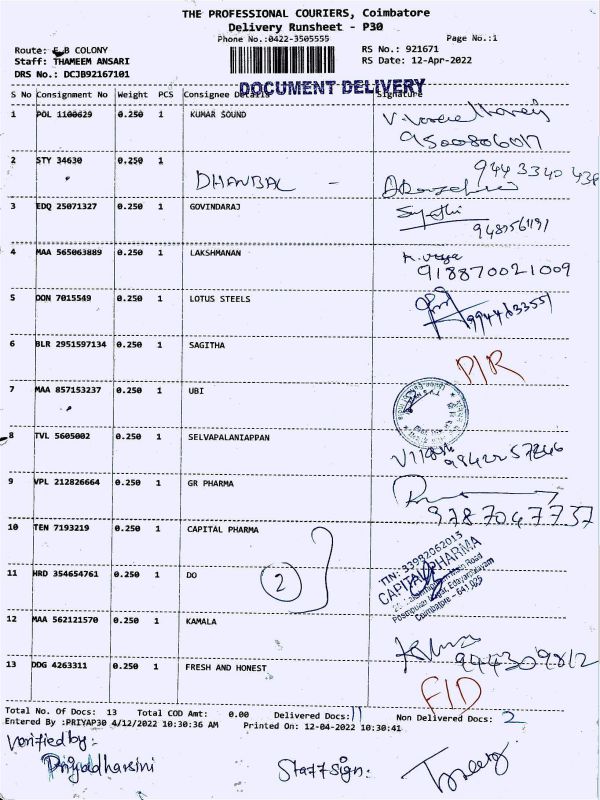 THE PROFESSIONAL COURIERS, Coimbatore
Delivery Runsheet - P30
Phone No.:0422-3505555
Page No.:1
Route: E B COLONY
RS No.: 921671
Staff: THAMEEM ANSARI
RS Date: 12-Apr-2022
DRS No.: DCJB92167101
DOCUMENT DELIVERY
S No Consignment No Weight PCS Consignee Details Signature
1 POL 1100629 0.250 1 KUMAR SOUND
9500806017
2 STY 34630 0.250 1
DHANBAL -
3 EDQ 25071327 0.250 1 GOVINDARAJ
4 MAA 565063889 0.250 1 LAKSHMANAN
918870021009
5 DON 7015549 0.250 1 LOTUS STEELS
6 BLR 2951597134 0.250 1 SAGITHA
P/R
7 MAA 857153237 0.250 1 UBI
8 TVL 5605002 0.250 1 SELVAPALANIAPPAN
9 VPL 212826664 0.250 1 GR PHARMA
9787047737
10 TEN 7193219 0.250 1 CAPITAL PHARMA
TIN: 33982062013
CAPITAL PHARMA
Coimbatore - 641 025
11 HRD 354654761 0.250 1 DO
2
12 MAA 562121570 0.250 1 KAMALA
944309812
13 DDG 4263311 0.250 1 FRESH AND HONEST
F/D
Total No. Of Docs: 13 Total COD Amt: 0.00 Delivered Docs: 11 Non Delivered Docs: 2
Entered By :PRIYAP30 4/12/2022 10:30:36 AM Printed On: 12-04-2022 10:30:41
Verified by:-
Priyadharsini
Staff sign: